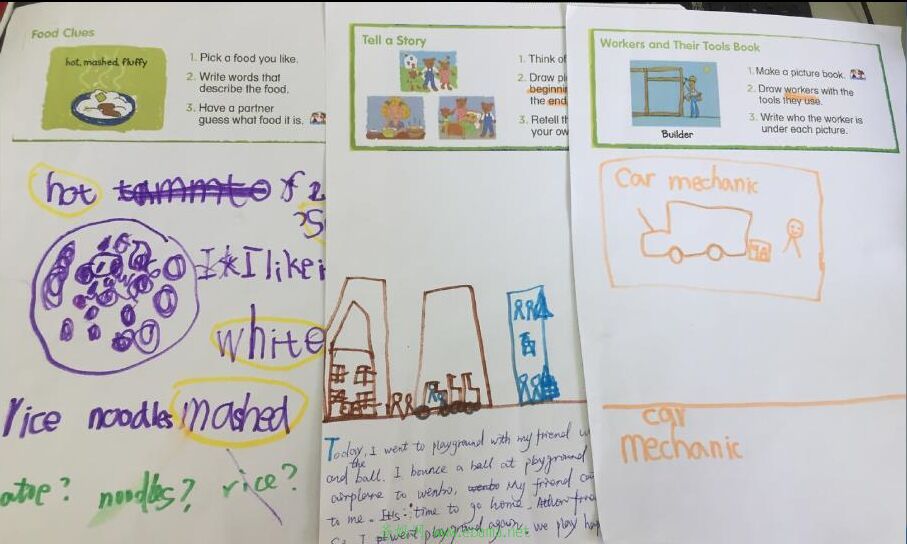 Food Clues
hot, mashed, fluffy
1. Pick a food you like.
2. Write words that
describe the food.
3. Have a partner
guess what food it is.
hot
I like
white
rice noodles mashed
noodles? rice?
Tell a Story
1. Think of
2. Draw
the end
3. Retell
your ow
Today, I went to playground with my friend
the
and ball. I bounce a ball at playground
airplane to wenbo, wenbo My friend
to me. It's time to go home.
I went playground again, we play
Workers and Their Tools Book
Builder
1. Make a picture book.
2. Draw workers with the
tools they use.
3. Write who the worker is
under each picture.
Car mechanic
car
mechanic